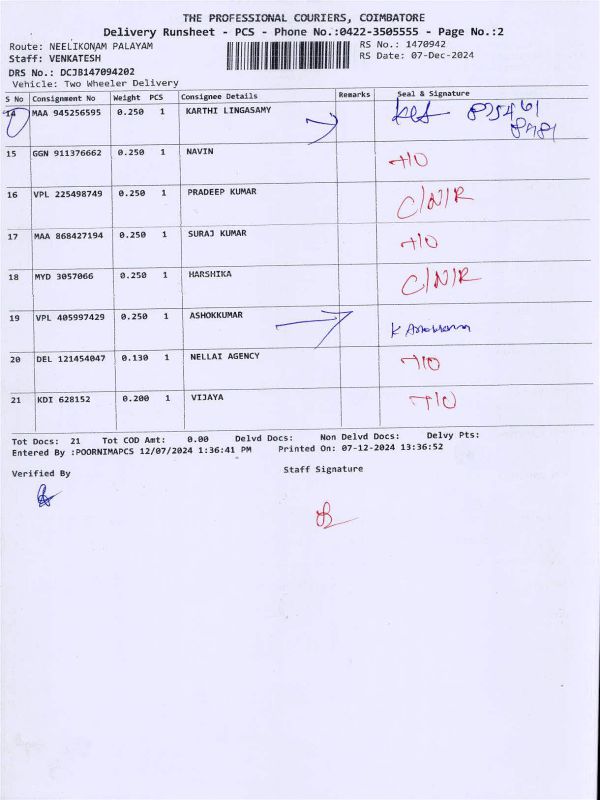 THE PROFESSIONAL COURIERS, COIMBATORE
Delivery Runsheet - PCS - Phone No.:0422-3505555 - Page No.:2
Route: NEELIKONAM PALAYAM
RS No.: 1470942
Staff: VENKATESH
RS Date: 07-Dec-2024
DRS No.: DCJB147094202
Vehicle: Two Wheeler Delivery
S No Consignment No Weight PCS Consignee Details Remarks Seal & Signature
14 MAA 945256595 0.250 1 KARTHI LINGASAMY
15 GGN 911376662 0.250 1 NAVIN T/O
16 VPL 225498749 0.250 1 PRADEEP KUMAR C/N/R
17 MAA 868427194 0.250 1 SURAJ KUMAR T/O
18 MYD 3057066 0.250 1 HARSHIKA C/N/R
19 VPL 405997429 0.250 1 ASHOKKUMAR K
20 DEL 121454047 0.130 1 NELLAI AGENCY T/O
21 KDI 628152 0.200 1 VIJAYA T/O
Tot Docs: 21 Tot COD Amt: 0.00 Delvd Docs: Non Delvd Docs: Delvy Pts:
Entered By :POORNIMAPCS 12/07/2024 1:36:41 PM Printed On: 07-12-2024 13:36:52
Verified By Staff Signature